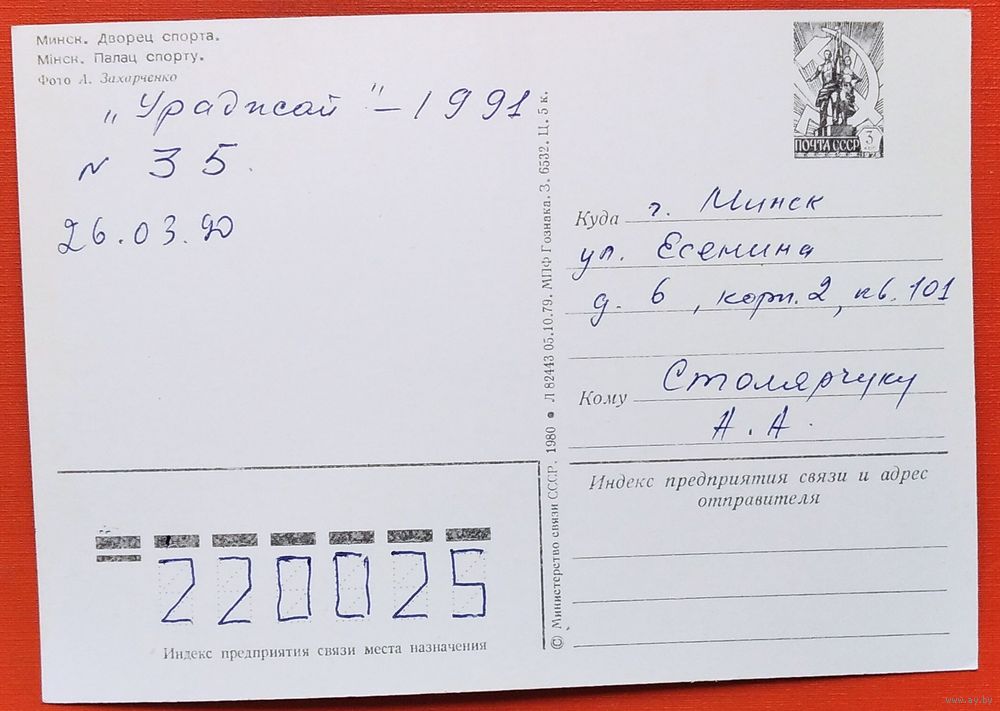 Минск. Дворец спорта.
Мінск. Палац спорту.
Фото А. Захарченко
„Ураджай" – 1991
N 35.
26.03.90
ПОЧТА СССР 3
© Министерство связи СССР. 1980 ● Л 82443 05.10.79. МПФ Гознака. З. 6532. Ц. 5 к.
Куда г. Минск
ул. Есенина
д. 6, корп. 2, кв. 101
Кому Столярчуку
А. А.
Индекс предприятия связи и адрес
отправителя
220025
Индекс предприятия связи места назначения
www.ay.by